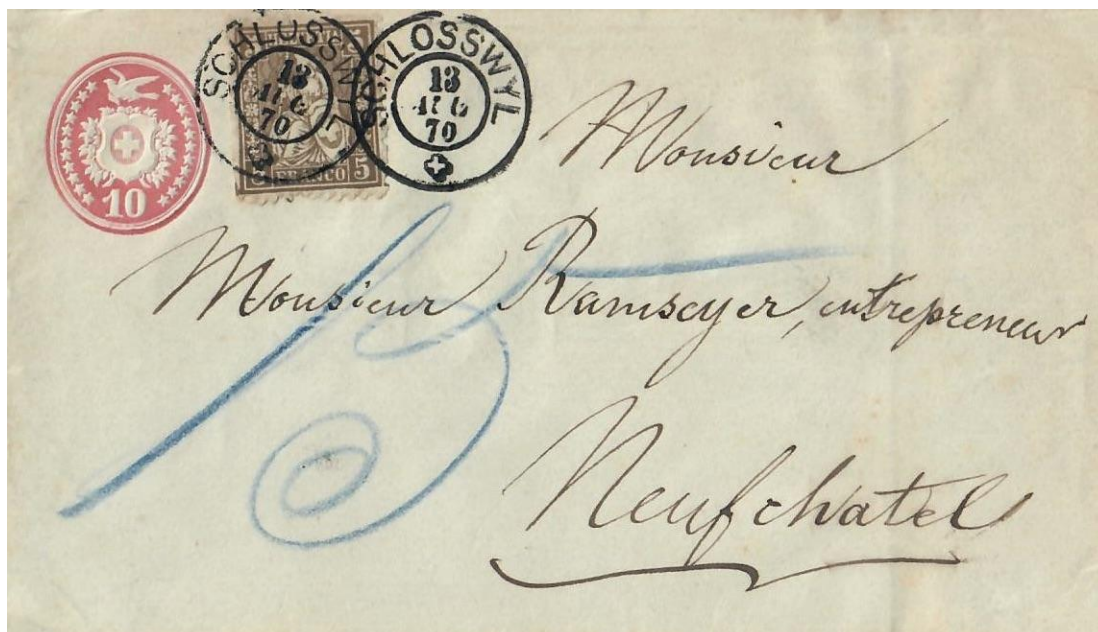 SCHLOSSWYL
13
AUG
70
SCHLOSSWYL
13
AUG
70
10
FRANCO 5
15
Monsieur
Monsieur Ramseyer, entrepreneur
Neufchatel